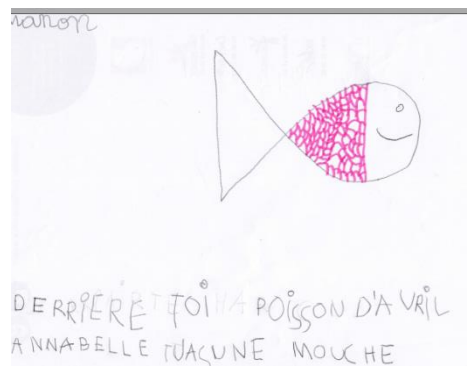 manon
DERRIERE TOI POISSON D'AVRIL
ANNABELLE TUASUNE MOUCHE